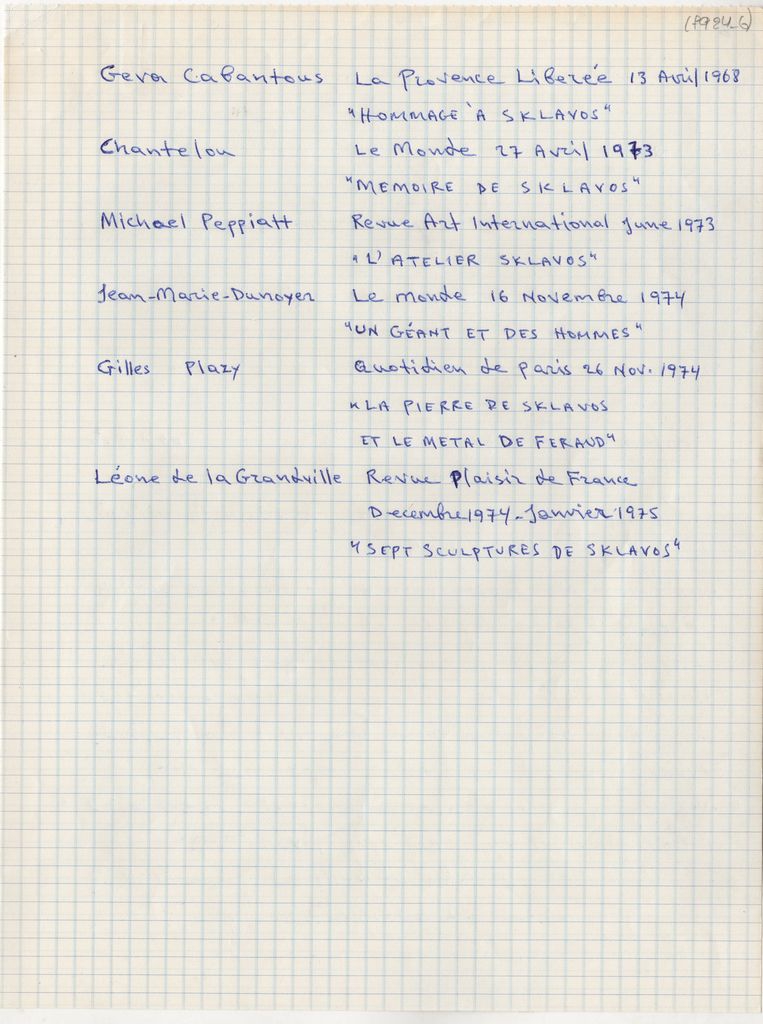 (1924_6)
Geva Cabantous La Provence Liberée 13 Avril 1968
"HOMMAGE À SKLAVOS"
Chantelou Le Monde 27 Avril 1973
"MEMOIRE DE SKLAVOS"
Michael Peppiatt Revue Art International June 1973
"L'ATELIER SKLAVOS"
Jean-Marie-Dunoyer Le monde 16 Novembre 1974
"UN GÉANT ET DES HOMMES"
Gilles Plazy Quotidien de paris 26 Nov. 1974
"LA PIERRE DE SKLAVOS
ET LE METAL DE FERAUD"
Léone de la Grandville Revue Plaisir de France
Decembre 1974-Janvier 1975
"SEPT SCULPTURES DE SKLAVOS"